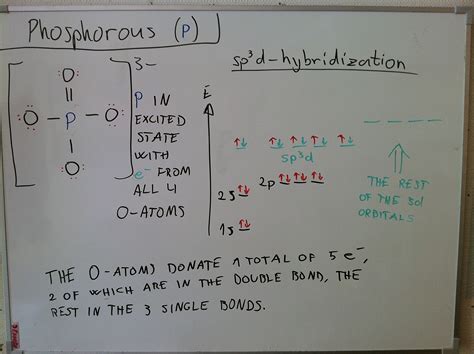 Phosphorous (P)
sp³d-hybridization
3-
O
O - P - O
O
P IN
EXCITED
STATE
WITH
e⁻ FROM
ALL 4
O-ATOMS
E
sp³d
2p
2s
1s
THE REST
OF THE 3d
ORBITALS
THE O-ATOMS DONATE A TOTAL OF 5 e⁻,
2 OF WHICH ARE IN THE DOUBLE BOND, THE
REST IN THE 3 SINGLE BONDS.